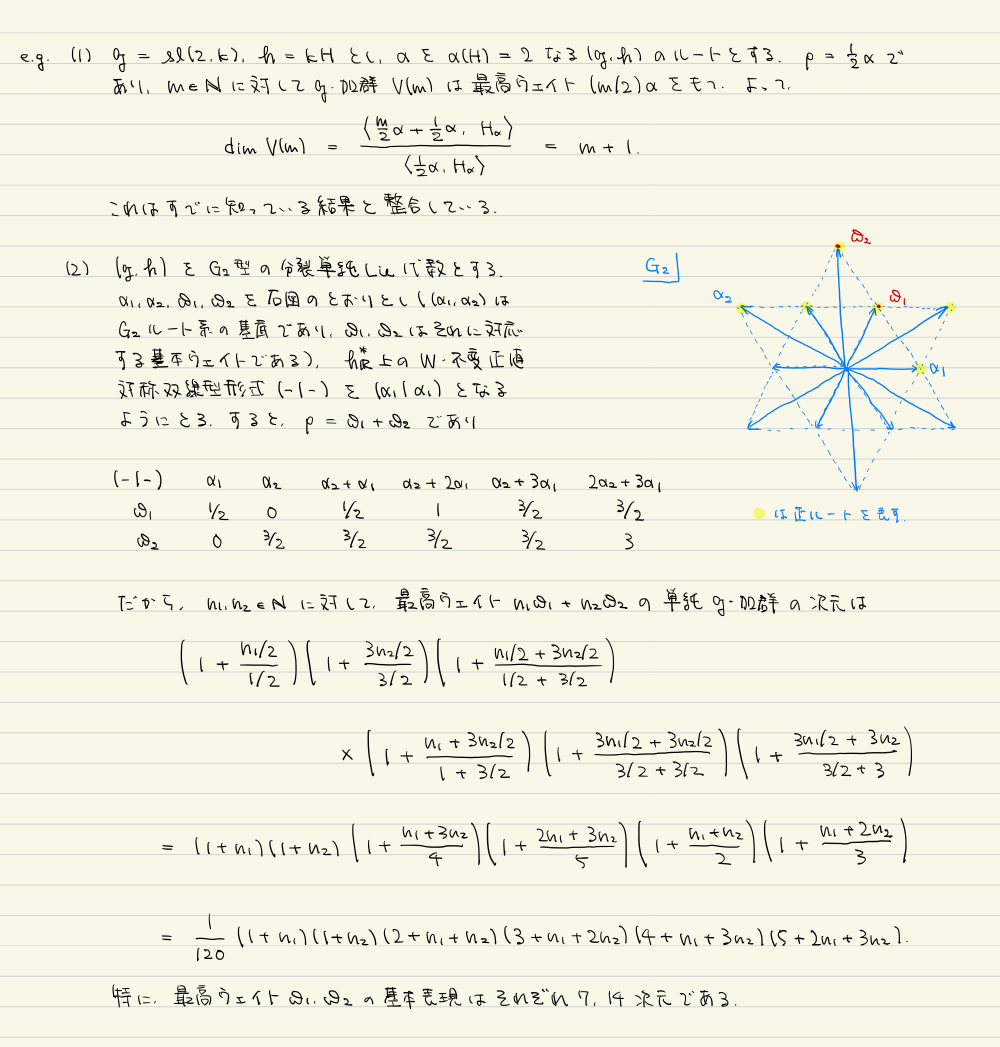 e.g. (1) g = sl(2,k), h = kH とし, α を α(H) = 2 なる (g,h) のルートとする. ρ = ½α で
あり, m∈N に対して g-加群 V(m) は最高ウェイト (m/2)α をもつ. よって,
dim V(m) = ⟨m/2 α + ½α, Hα⟩ / ⟨½α, Hα⟩ = m + 1.
これはすでに知っている結果と整合している.
(2) (g,h) を G₂型の分裂単純 Lie 代数とする.
α₁, α₂, ϖ₁, ϖ₂ を右図のとおりとし ((α₁,α₂) は
G₂ ルート系の基底であり, ϖ₁, ϖ₂ はそれに対応
する基本ウェイトである), h*_R 上の W-不変正値
対称双線型形式 (-|-) を (α₁|α₁) となる
ようにとる. すると, ρ = ϖ₁ + ϖ₂ であり
G₂
ϖ₂
α₂
ϖ₁
α₁
は正ルートを表す.
(-|-) α₁ α₂ α₂+α₁ α₂+2α₁ α₂+3α₁ 2α₂+3α₁
ϖ₁ 1/2 0 1/2 1 3/2 3/2
ϖ₂ 0 3/2 3/2 3/2 3/2 3
だから, n₁,n₂∈N に対して, 最高ウェイト n₁ϖ₁ + n₂ϖ₂ の単純 g-加群の次元は
(1 + (n₁/2)/(1/2)) (1 + (3n₂/2)/(3/2)) (1 + (n₁/2 + 3n₂/2)/(1/2 + 3/2))
× (1 + (n₁ + 3n₂/2)/(1 + 3/2)) (1 + (3n₁/2 + 3n₂/2)/(3/2 + 3/2)) (1 + (3n₁/2 + 3n₂)/(3/2 + 3))
= (1+n₁)(1+n₂) (1 + (n₁+3n₂)/4) (1 + (2n₁+3n₂)/5) (1 + (n₁+n₂)/2) (1 + (n₁+2n₂)/3)
= 1/120 (1+n₁)(1+n₂)(2+n₁+n₂)(3+n₁+2n₂)(4+n₁+3n₂)(5+2n₁+3n₂).
特に, 最高ウェイト ϖ₁, ϖ₂ の基本表現はそれぞれ 7, 14 次元である.